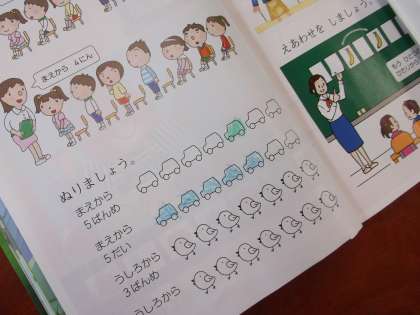 まえから 4にん
ぬりましょう。
まえから
5ばんめ
まえから
5だい
うしろから
3ばんめ
うしろから
えあわせを しましょう。